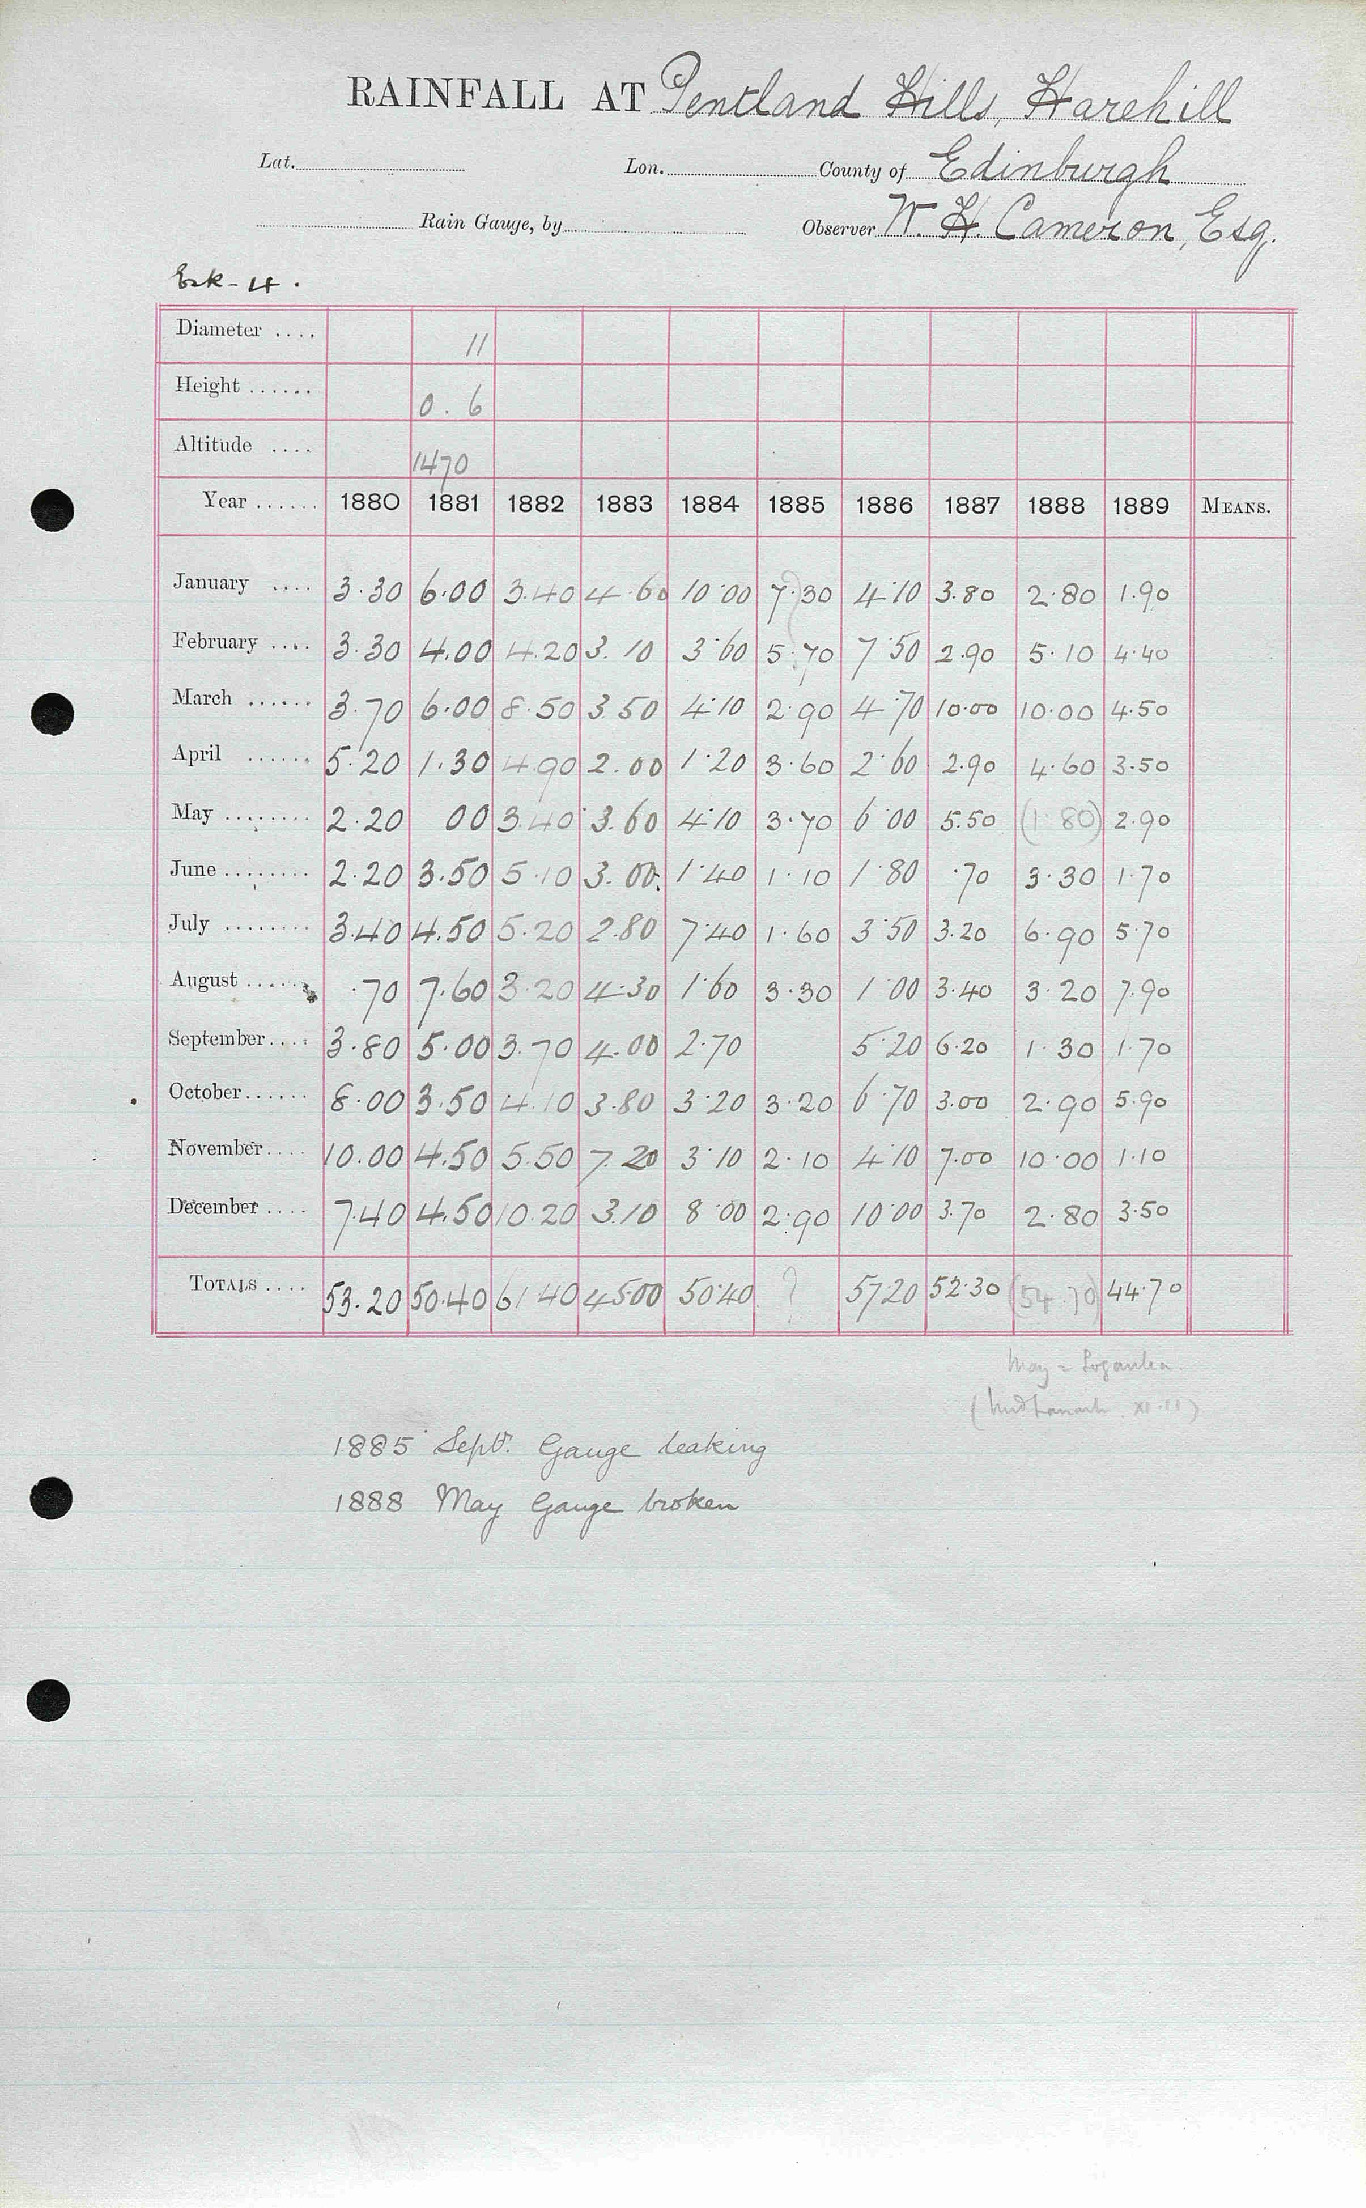 RAINFALL AT Pentland Hills, Harehill
Lat. Lon. County of Edinburgh
Rain Gauge, by Observer W. H. Cameron, Esq.
Esk-4.
Diameter .... 11
Height ...... 0.6
Altitude .... 1470
Year ...... 1880 1881 1882 1883 1884 1885 1886 1887 1888 1889 MEANS.
January .... 3.30 6.00 3.40 4.60 10.00 7.30 4.10 3.80 2.80 1.90
February .... 3.30 4.00 4.20 3.10 3.60 5.70 7.50 2.90 5.10 4.40
March ...... 3.70 6.00 8.50 3.50 4.10 2.90 4.70 10.00 10.00 4.50
April ...... 5.20 1.30 4.90 2.00 1.20 3.60 2.60 2.90 4.60 3.50
May ........ 2.20 00 3.40 3.60 4.10 3.70 6.00 5.50 (1.80) 2.90
June ........ 2.20 3.50 5.10 3.00 1.40 1.10 1.80 .70 3.30 1.70
July ........ 3.40 4.50 5.20 2.80 7.40 1.60 3.50 3.20 6.90 5.70
August ...... .70 7.60 3.20 4.30 1.60 3.30 1.00 3.40 3.20 7.90
September.... 3.80 5.00 3.70 4.00 2.70 5.20 6.20 1.30 1.70
October...... 8.00 3.50 4.10 3.80 3.20 3.20 6.70 3.00 2.90 5.90
November.... 10.00 4.50 5.50 7.20 3.10 2.10 4.10 7.00 10.00 1.10
December .... 7.40 4.50 10.20 3.10 8.00 2.90 10.00 3.70 2.80 3.50
TOTALS .... 53.20 50.40 61.40 45.00 50.40 ? 57.20 52.30 (54.70) 44.70
May = Loganlea.
1885 Sept. Gauge leaking
1888 May Gauge broken